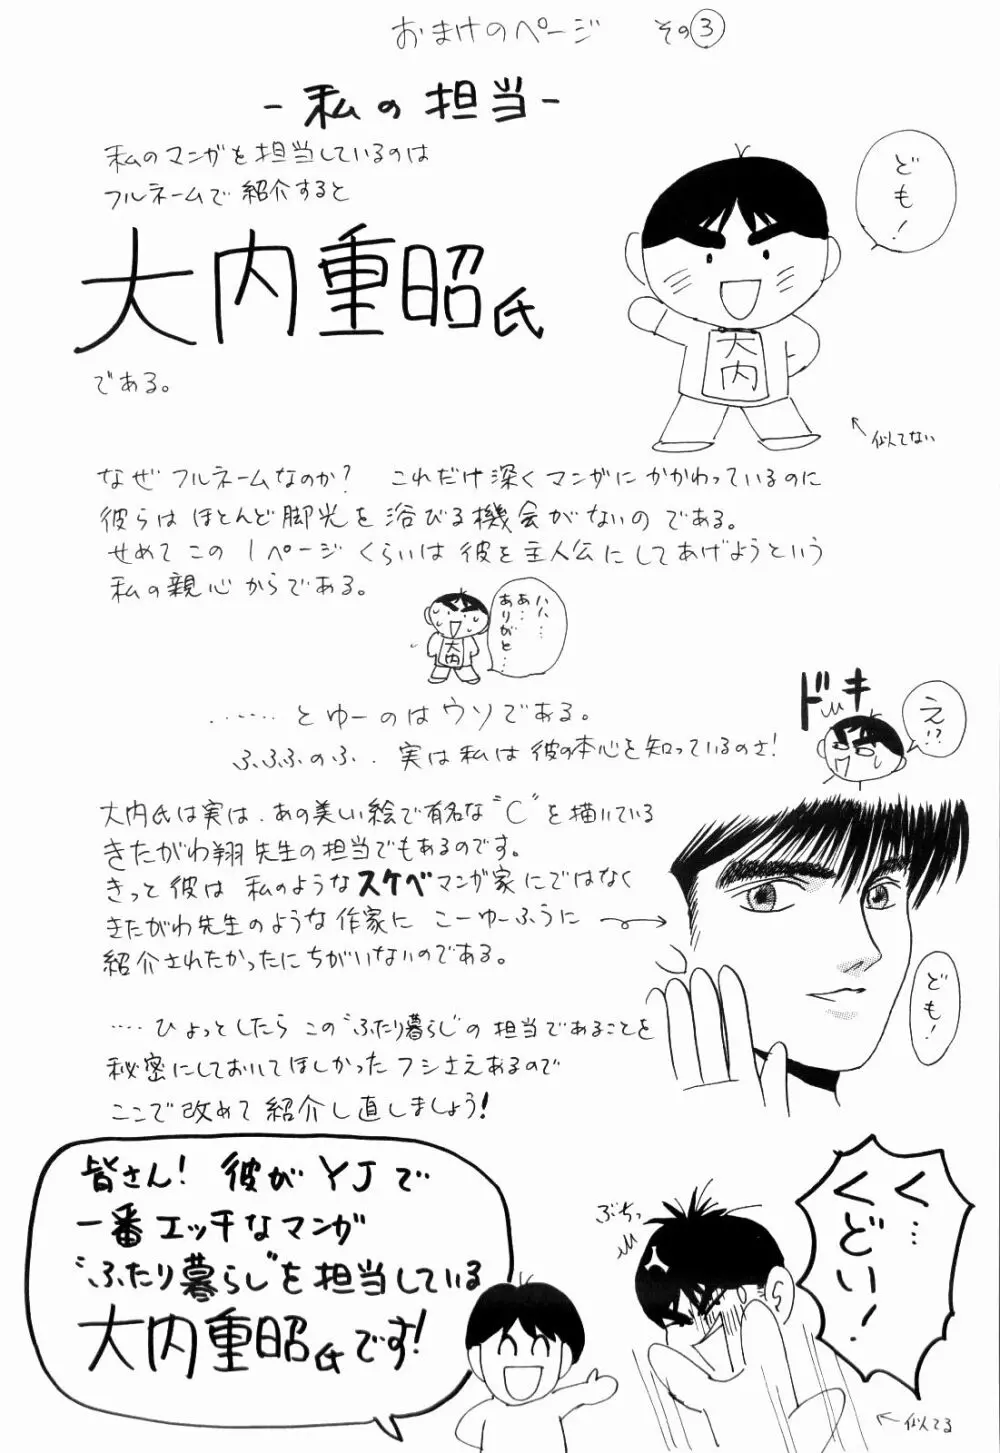 おまけのページ その③
-私の担当-
私のマンガを担当しているのは
フルネームで紹介すると
大内重昭氏
である。
ども!
大内
←似てない
なぜフルネームなのか? これだけ深くマンガにかかわっているのに
彼らはほとんど脚光を浴びる機会がないのである。
せめてこの1ページくらいは彼を主人公にしてあげようという
私の親心からである。
ハハ…
あ…
ありがと…
大内
……とゆーのはウソである。
ふふふのふ. 実は私は彼の本心を知っているのさ!
ドキ
え!?
大内氏は実は、あの美しい絵で有名な“C”を描いている
きたがわ翔先生の担当でもあるのです。
きっと彼は私のようなスケベマンガ家にではなく
きたがわ先生のような作家にこーゆーふうに
紹介されたかったにちがいないのである。
ども!
‥‥ひょっとしたらこの“ふたり暮らし”の担当であることを
秘密にしておいてほしかったフシさえあるので
ここで改めて紹介し直しましょう!
皆さん! 彼がYJで
一番エッチなマンガ
“ふたり暮らし”を担当している
大内重昭氏です!
ぶちっ
く…
くどい!
←似てる